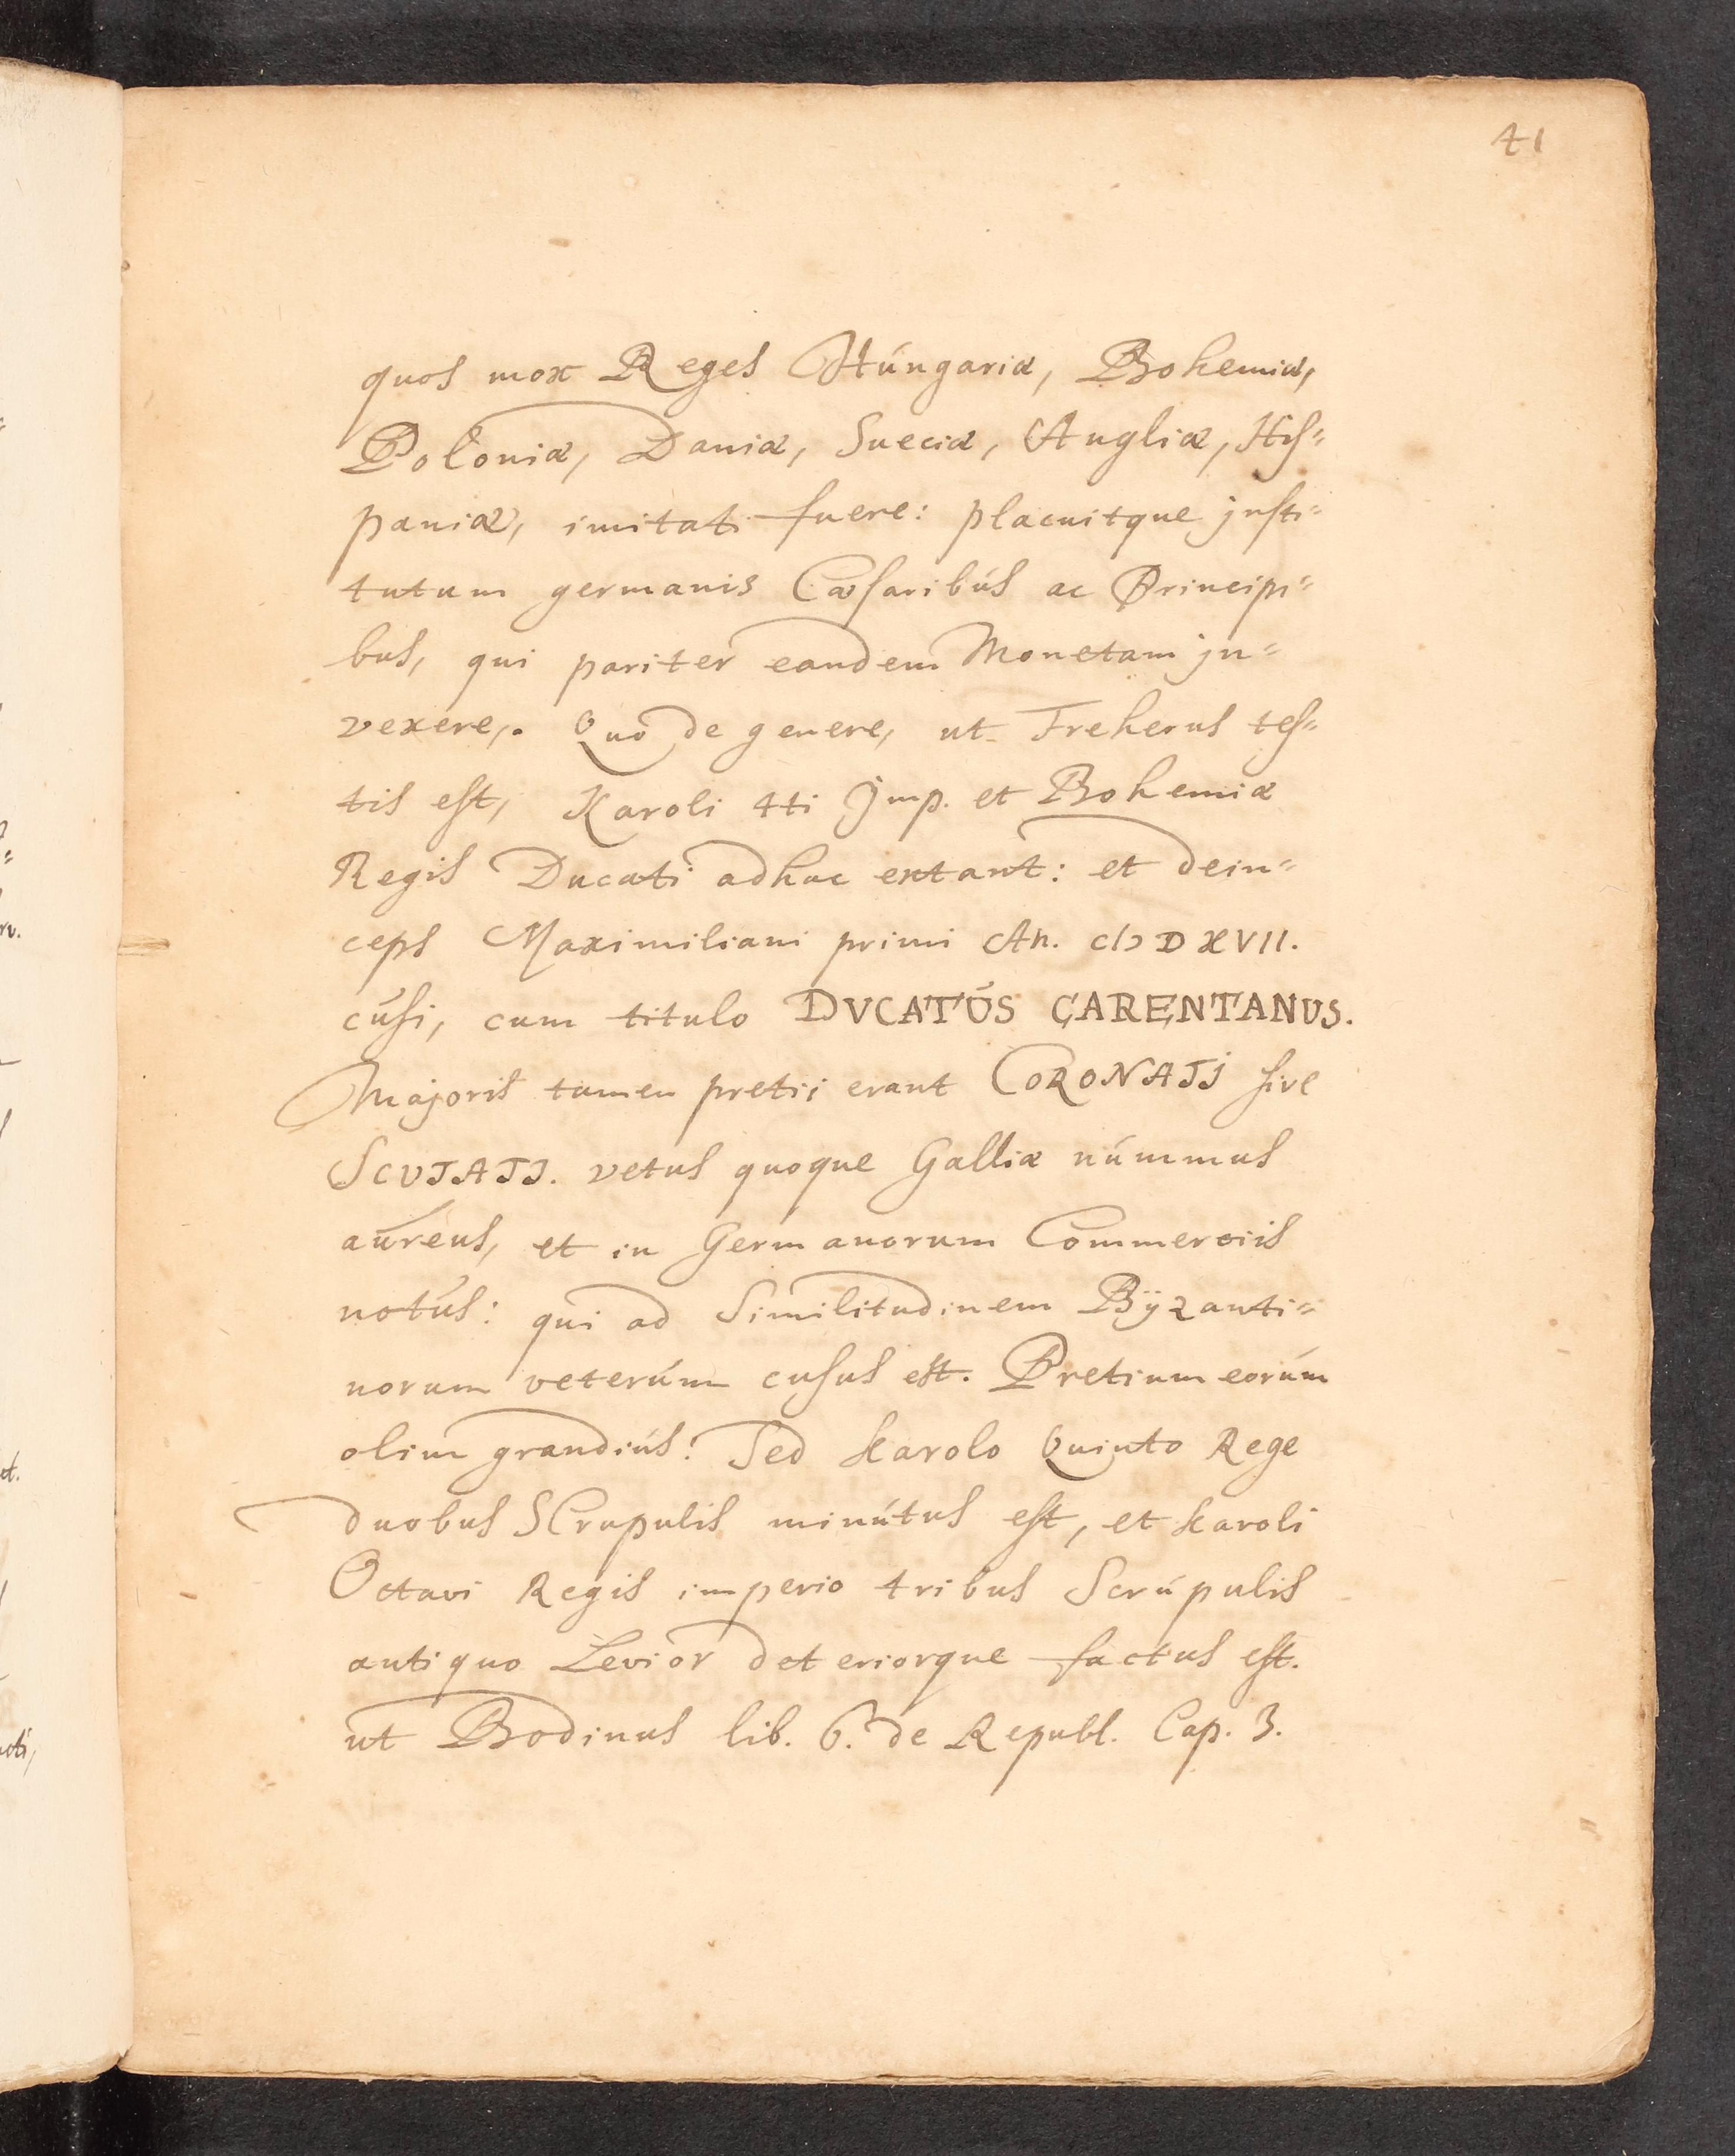 41
quos mox Reges Húngariæ, Bohemiæ,
Poloniæ, Daniæ, Sueciæ, Angliæ, His=
paniæ, imitati fuere: placuitque jnsti=
tutum germanis Cæsaribús ac Principi=
bus, qui pariter eandem Monetam jn=
vexere,. Quo de genere, ut Freherus tes=
tis est, Karoli 4ti Jmp. et Bohemiæ
Regis Ducati adhuc extant: et dein=
ceps Maximiliani primi An. cIɔ D XVII.
cúsi, cum titulo DVCATÚS CARENTANUS.
Majoris tamen pretii erant CORONATJ sive
SCUTATJ. vetus quoque Galliæ númmus
aúreus, et in Germanorum Commerciis
notús: qui ad Similitudinem Bÿzanti=
norum veterúm cusus est. Pretium eorúm
olim grandiús: Sed Karolo Quinto Rege
duobus SCrupulis minútus est, et Karoli
Octavi Regis imperio tribus Scrúpulis
antiquo Levior deteriorque factus est.
ut Bodinus lib. 6. de Republ. Cap. 3.